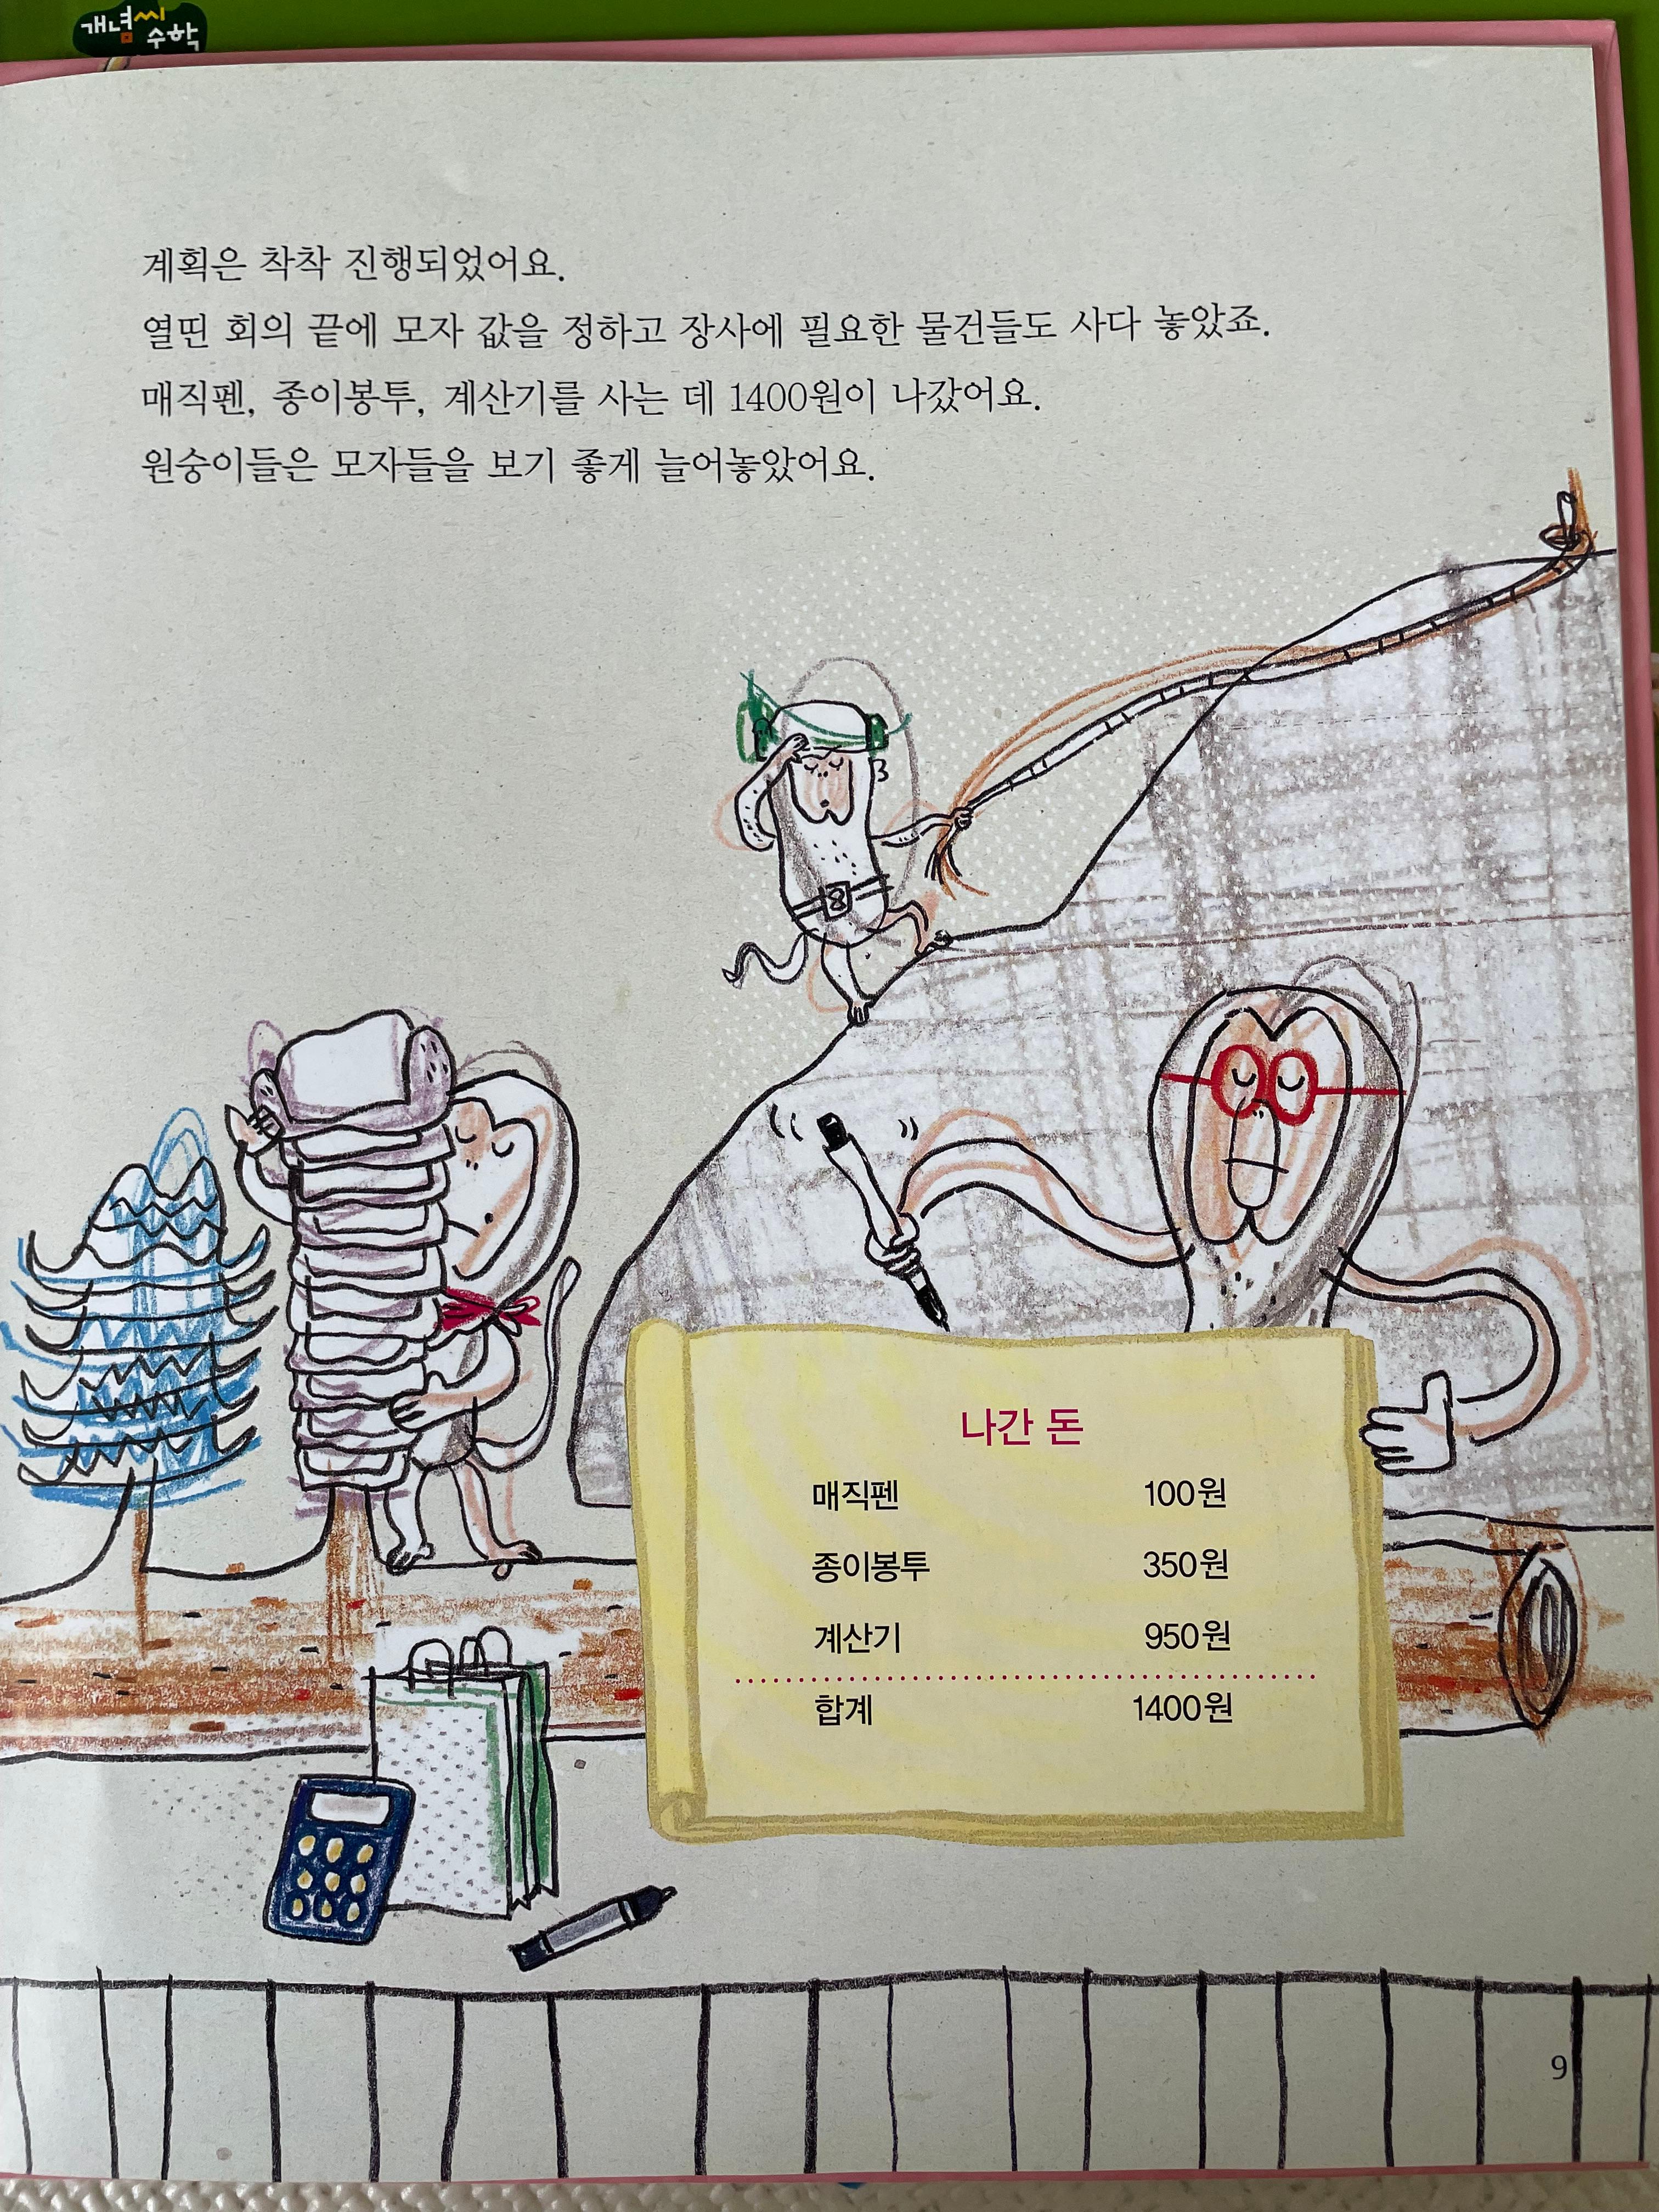 개념씨
수학
계획은 착착 진행되었어요.
열띤 회의 끝에 모자 값을 정하고 장사에 필요한 물건들도 사다 놓았죠.
매직펜, 종이봉투, 계산기를 사는 데 1400원이 나갔어요.
원숭이들은 모자들을 보기 좋게 늘어놓았어요.
나간 돈
매직펜 100원
종이봉투 350원
계산기 950원
합계 1400원
9